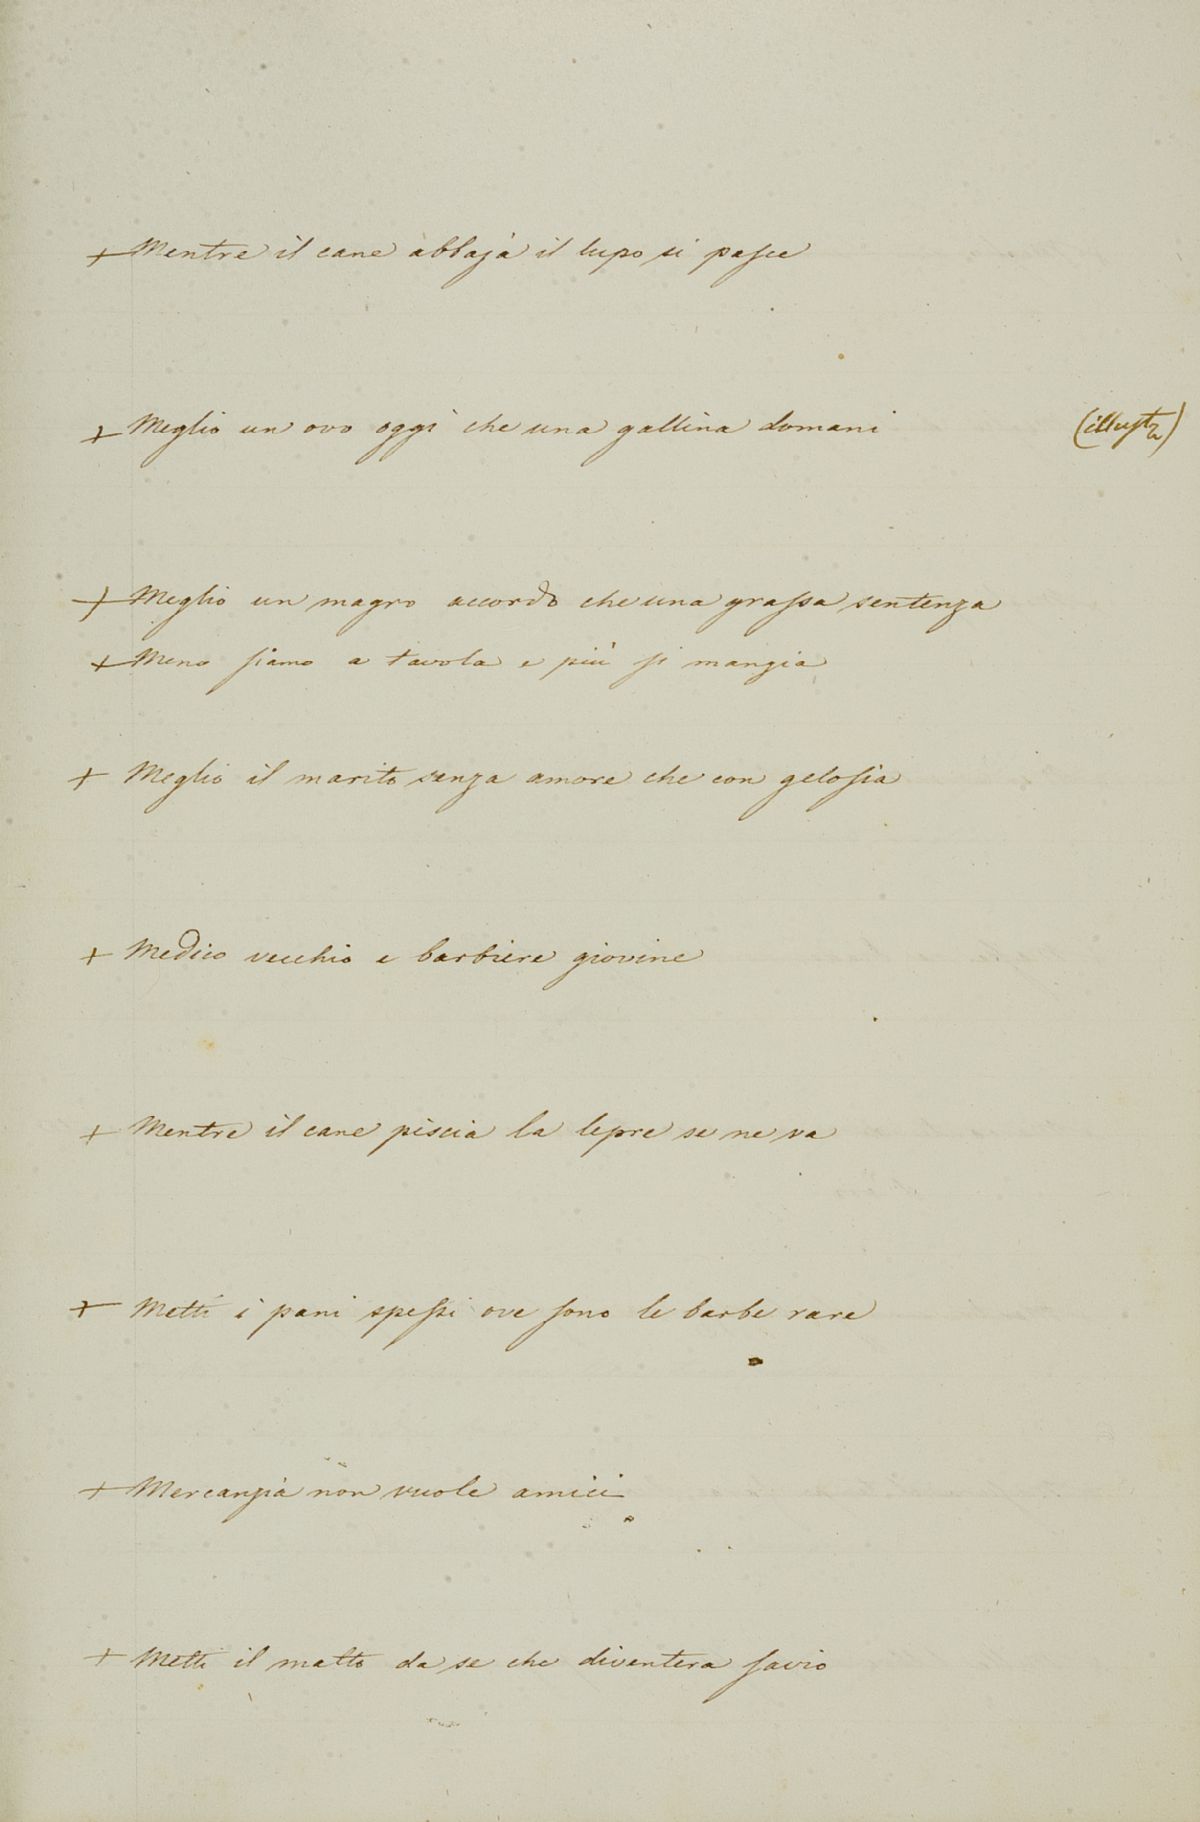 + Mentre il cane abbaja il lupo si pasce
+ Meglio un ovo oggi che una gallina domani (illustra)
+ Meglio un magro accordo che una grassa sentenza
+ Meno siamo a tavola e più si mangia
+ Meglio il marito senza amore che con gelosia
+ Medico vecchio e barbiere giovine
+ Mentre il cane piscia la lepre se ne va
+ Metti i pani spessi ove sono le barbe rare
+ Mercanzia non vuole amici
+ Metti il matto da se che diventera savio